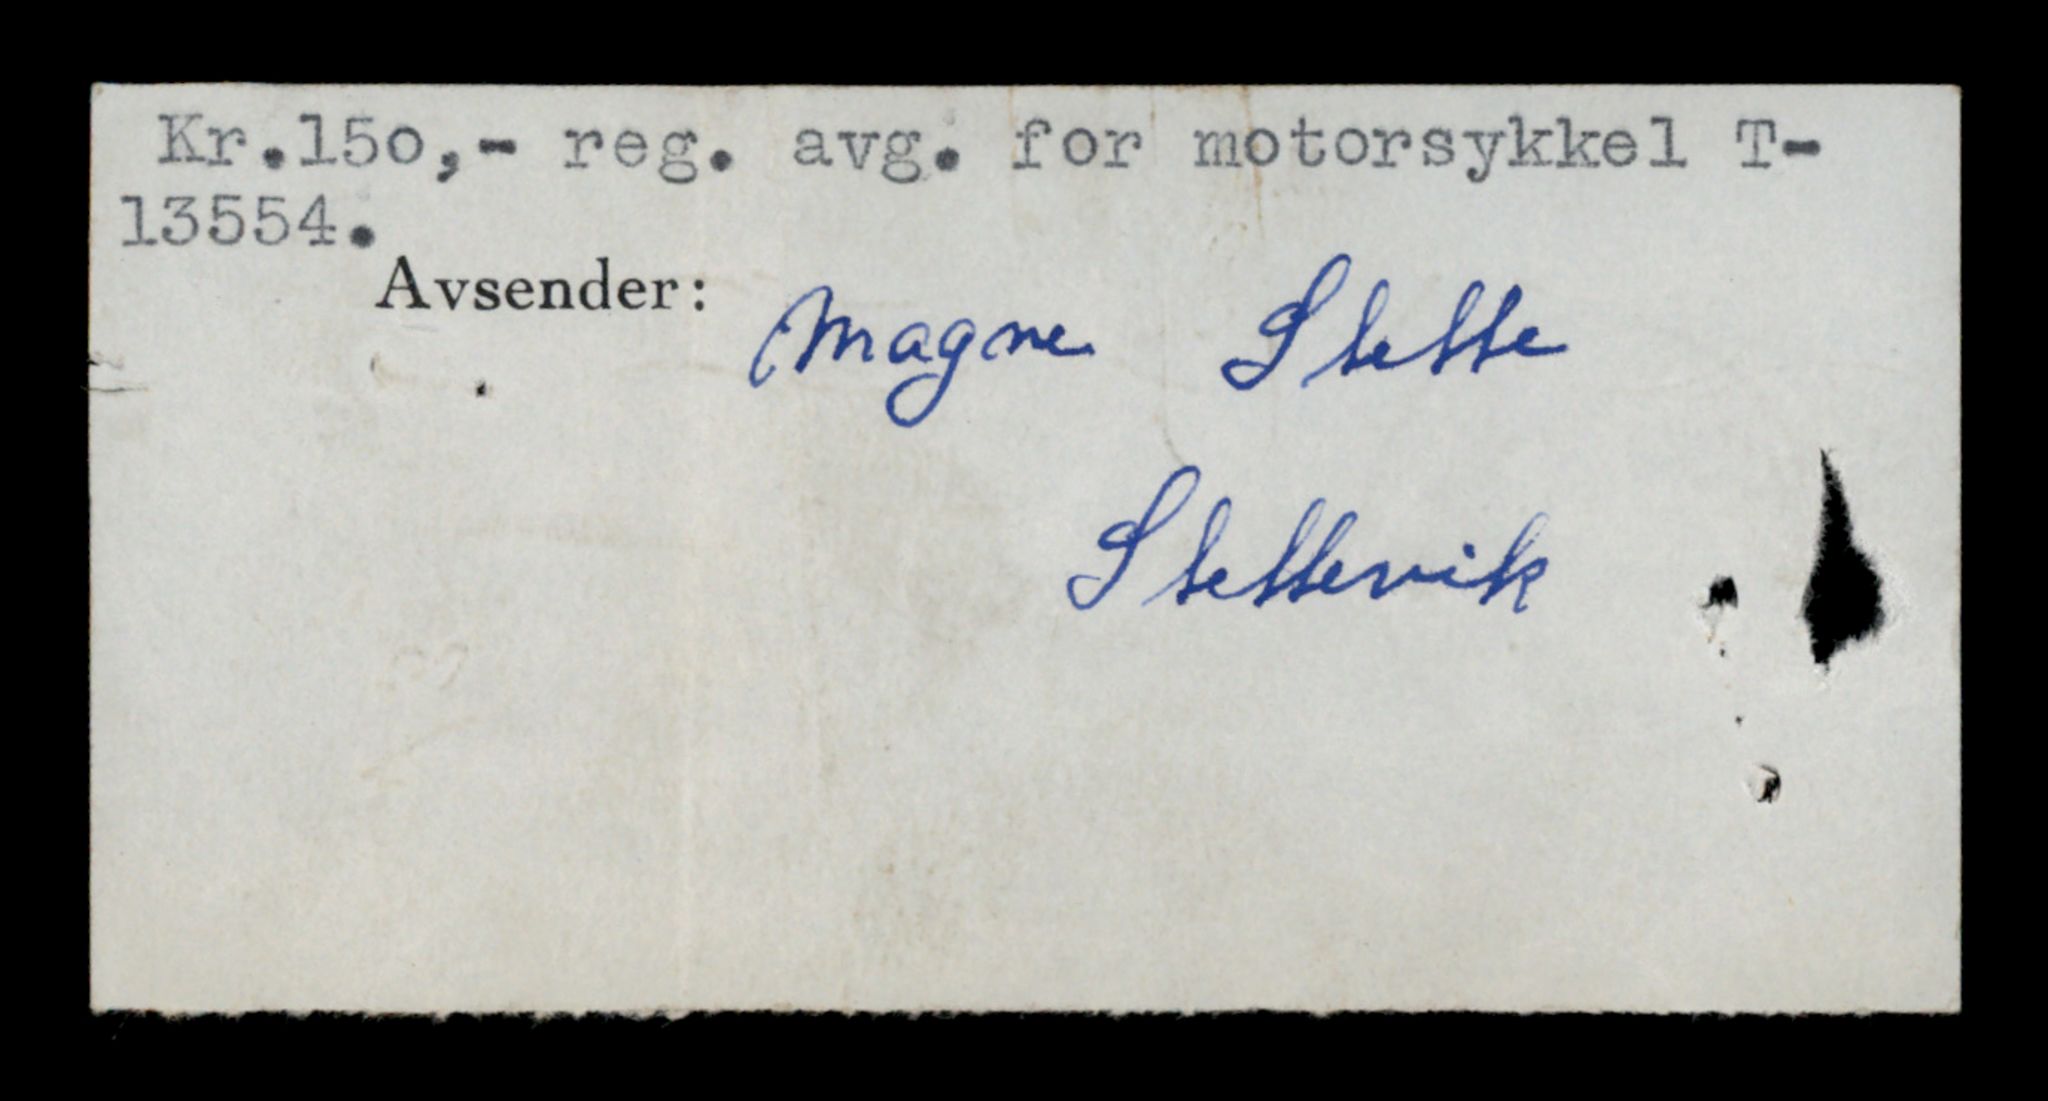 Kr.150,- reg. avg. for motorsykkel T-
13554.
Avsender: Magne Stette
Stettevik